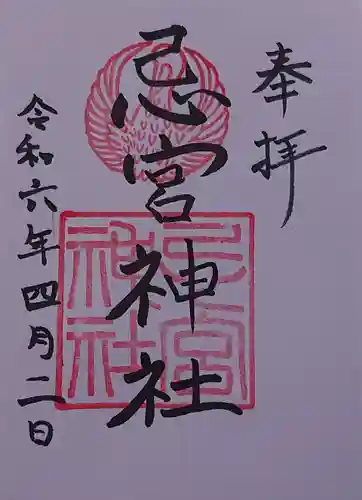 奉拝
忌宮神社
令和六年四月二日
忌宮
神社